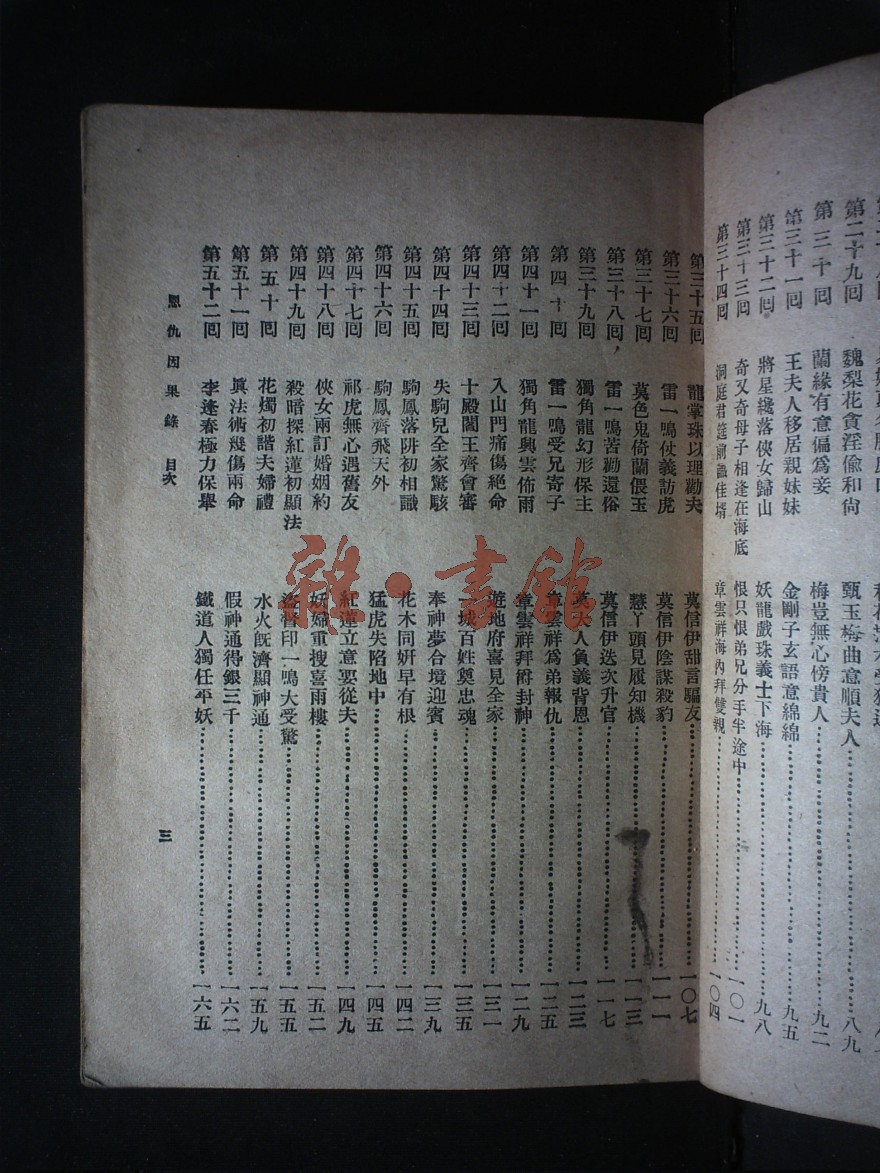 第二十九囘 魏梨花貪淫偸和尙 甄玉梅曲意順夫人 八九
第三十囘 蘭緣有意偏爲妾 梅豈無心傍貴人 九二
第三十一囘 王夫人移居親妹妹 金剛子玄語意綿綿 九五
第三十二囘 將星纔落俠女歸山 妖龍戲珠義士下海 九八
第三十三囘 奇又奇母子相逢在海底 恨只恨弟兄分手半途中 一〇一
第三十四囘 洞庭君筵前識佳壻 章雲祥海內拜雙親 一〇四
第三十五囘 龍掌珠以理勸夫 莫信伊甜言騙友 一〇七
第三十六囘 雷一鳴仗義訪虎 莫信伊陰謀殺豹 一一一
第三十七囘 莫色鬼倚蘭偎玉 慧丫頭見履知機 一一三
第三十八囘 雷一鳴苦勸還俗 莫信伊迭次升官 一一七
第三十九囘 獨角龍幻形保主 莫夫人負義背恩 一二三
第四十囘 雷一鳴受兄寄子 章雲祥爲弟報仇 一二五
第四十一囘 獨角龍興雲佈雨 章雲祥拜爵封神 一二九
第四十二囘 入山門痛傷絕命 遊地府喜見全家 一三一
第四十三囘 十殿閻王齊會審 一城百姓奠忠魂 一三五
第四十四囘 失駒兒全家驚駭 奉神夢合境迎賓 一三九
第四十五囘 駒鳳落阱初相識 花木同妍早有根 一四二
第四十六囘 駒鳳齊飛天外 猛虎失陷地中 一四五
第四十七囘 祁虎無心遇舊友 紅蓮立意要從夫 一四九
第四十八囘 俠女兩訂婚姻約 妖婦重搜喜雨樓 一五二
第四十九囘 殺暗探紅蓮初顯法 盜督印一鳴大受驚 一五五
第五十囘 花燭初諧夫婦禮 水火旣濟顯神通 一五九
第五十一囘 眞法術幾傷兩命 假神通得銀三千 一六二
第五十二囘 李逢春極力保舉 鐵道人獨任平妖 一六五
恩仇因果錄 目次 三
雜·書館